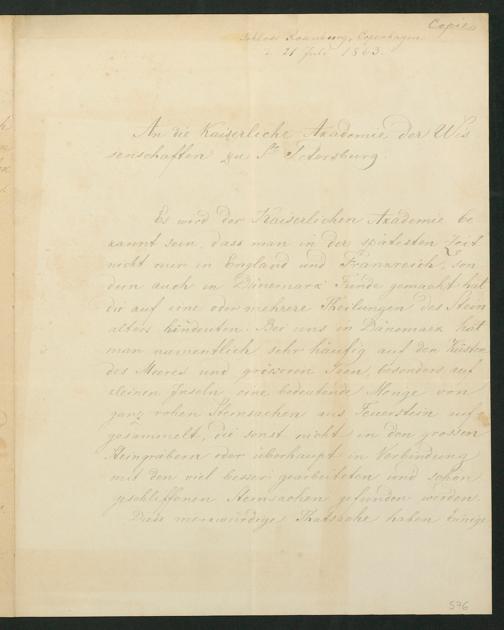 Copie
Schloss Rosenborg, Copenhagen
d. 21 Juli 1863.
An die Kaiserliche Academie der Wis
senschaften zu St Petersburg.
Es wird der Kaiserlichen Academie be
kannt sein, dass man in der spätesten Zeit
nicht nur in England und Frankreich, son
dern auch in Dänemark Funde gemacht hat
die auf eine oder mehrere Theilungen des Stein
alters hindeuten. Bei uns in Dänemark hat
man namentlich sehr häufig auf den Küsten
des Meeres und grösseren Seen, besonders auf
kleinen Inseln eine bedeutende Menge von
ganz rohen Steinsachen aus Feuerstein auf
gesammelt, die sonst nicht in den grossen
Steingräbern oder überhaupt in Verbindung
mit den viel besser gearbeiteten und schön
geschliffenen Steinsachen gefunden werden.
Diese merkwürdige Thatsache haben Einige
576